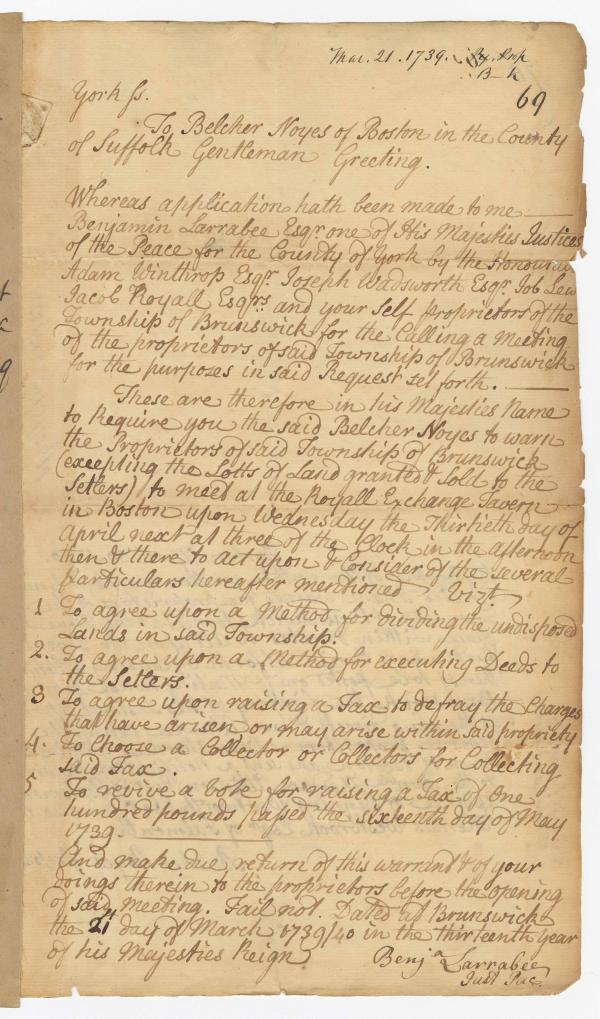 Mar. 21. 1739.
B k
69
York ss.
To Belcher Noyes of Boston in the County
of Suffolk Gentleman Greeting.
Whereas application hath been made to me
Benjamin Larrabee Esqr. one of His Majesties Justices
of the Peace for the County of York by the Honourable
Adam Winthrop Esqr. Joseph Wadsworth Esqr. Job Lew
Jacob Royall Esqrs. and your Self Proprietors of the
Township of Brunswick for the Calling a Meeting
of the proprietors of said Township of Brunswick
for the purposes in said Request set forth.
These are therefore in his Majesties Name
to Require you the said Belcher Noyes to warn
the Proprietors of said Township of Brunswick
(excepting the Lotts of Land granted & Sold to the
Setlers) to meet at the Royall Exchange Tavern
in Boston upon Wednesday the Thirtieth day of
April next at three of the Clock in the afternoon
then & there to act upon & Consider of the several
particulars hereafter mentioned Vizt.
1 To agree upon a Method for dividing the undisposed
Lands in said Township.
2. To agree upon a Method for executing Deeds to
the Setlers.
3 To agree upon raising a Tax to defray the Charges
that have arisen or may arise within said propriety
4. To Choose a Collector or Collectors for Collecting
said Tax.
5 To revive a Vote for raising a Tax of One
hundred pounds passed the sixteenth day of May
1739.
And make due return of this warrant & of your
doings therein to the proprietors before the opening
of said meeting. Fail not. Dated at Brunswick
the 21st day of March 1739/40 in the thirteenth year
of his Majesties Reign
Benja Larrabee
Just Pac.